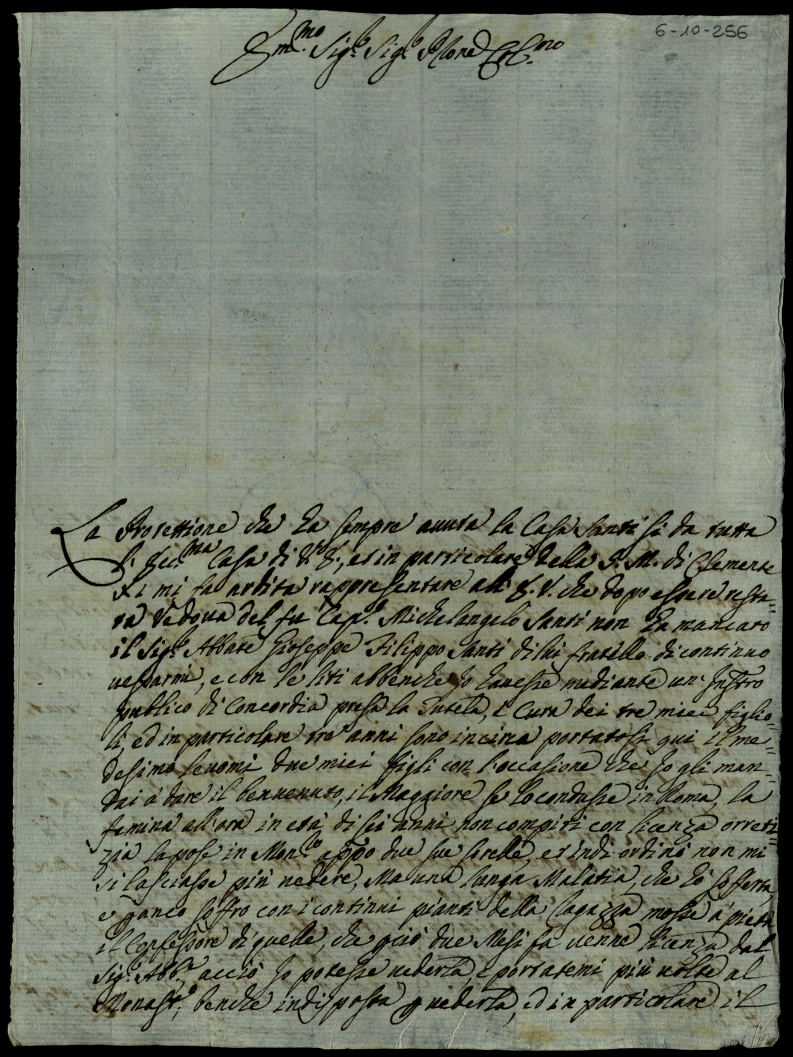 6-10-256
Em.mo Sig.e Sig.e P.rone Col.mo
La Protettione che ha sempre auuta la Casa Santi sì da tutta
l'Ecc.ma Casa di V. E., et in particolare della S. M. di Clemente
XI mi fa ardita rappresentare all' E. V. che dopo essere resta-
ta Vedoua del fu Cap.o Michelangelo Santi non ha mancato
il Sig.e Abbate Gioseppe Filippo Santi di lui fratello di continuo
uessarmi, e con le liti abbenche Io hauesse mediante un' Instro
publico di Concordia presa la Tutela, e Cura dei tre miei figlio-
li, ed in particolare tre anni sono incirca portatosi qui il me-
desimo leuomi due miei figli con l'occasione che Io gli man-
dai à dare il benuenuto, il Maggiore se lo condusse in Roma, la
femina all'ora in età di sei anni non compiti con licenza orreti-
zia la pose in Mon.o appo due sue sorelle, et indi ordinò non mi
si lasciasse più uedere, Ma una lunga Malatia, che hò sofferta,
e ganco soffro con i continui pianti della ragazza mosse à pietà
il Confessore di quelle, che già due Mesi fà uenne licenza dal
Sig.e Abb.e acciò Io potesse uederla, e portatemi più uolte al
Monast.o, benche indisposta p uederla, ed in particolare il